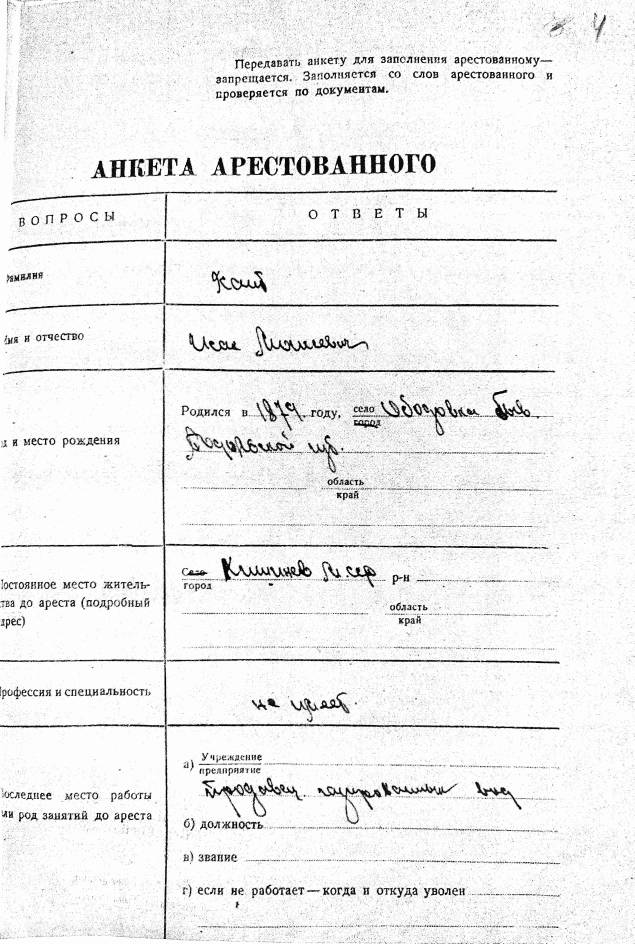 4
Передавать анкету для заполнения арестованному—
запрещается. Заполняется со слов арестованного и
проверяется по документам.
АНКЕТА АРЕСТОВАННОГО
ВОПРОСЫ
ОТВЕТЫ
амилия
Имя и отчество
Исак
д и место рождения
Родился в 1879 году, село Ободовка быв.
город
Подольской губ.
область
край
Постоянное место житель-
тва до ареста (подробный
дрес)
Село Кишинев р-н
город
область
край
Профессия и специальность
не имеет.
Последнее место работы
ли род занятий до ареста
а) Учреждение
предприятие
продавец газированных вод
б) должность
в) звание
г) если не работает—когда и откуда уволен